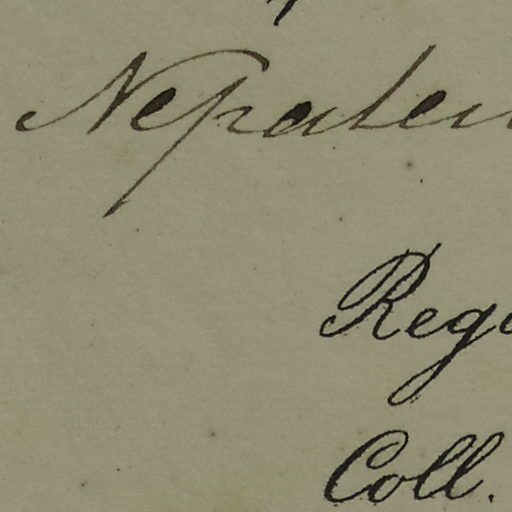 Nepalen
Rego
Coll.